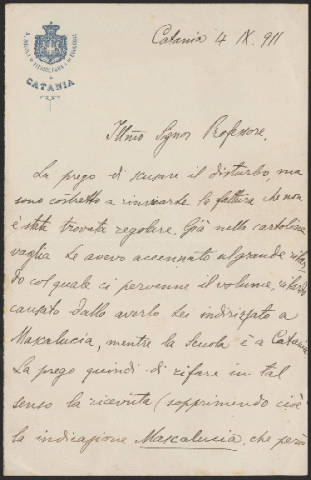 R. SCUOLA DI VITICOLTURA E DI ENOLOGIA
CATANIA
Catania 4 IX. 911
Illmo Signor Professore.
La prego di scusare il disturbo, ma
sono costretto a rimandarLe la fattura che non
è stata trovata regolare. Già nella cartolina
vaglia Le avevo accennato al grande ritar-
do col quale ci pervenne il volume, ritardo
causato dallo averlo Lei indirizzato a
Mascalucia, mentre la Scuola è a Catania
La prego quindi di rifare in tal
senso la ricevuta (sopprimendo cioè
la indicazione Mascalucia, che però